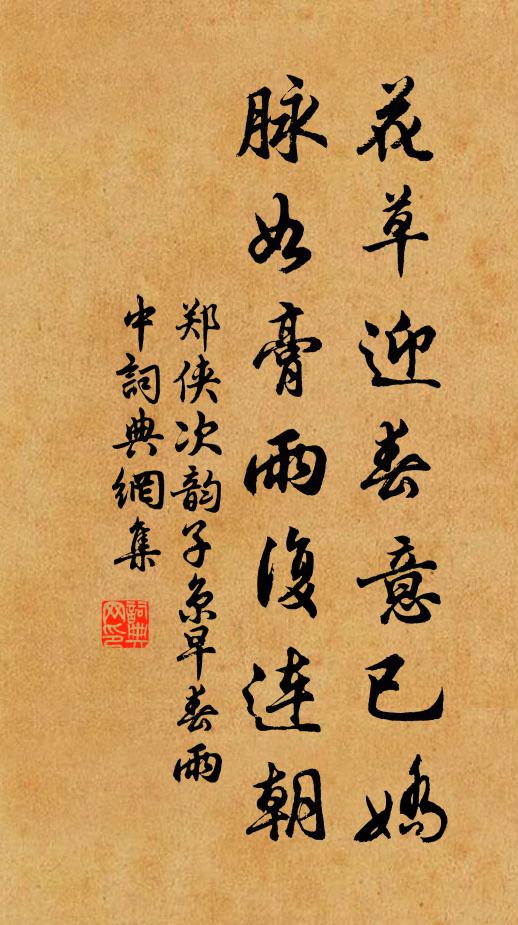 花草迎春意已嬌
脉如膏雨復連朝
郑侠次韵子京早春雨
中詞典網集
詞典網印